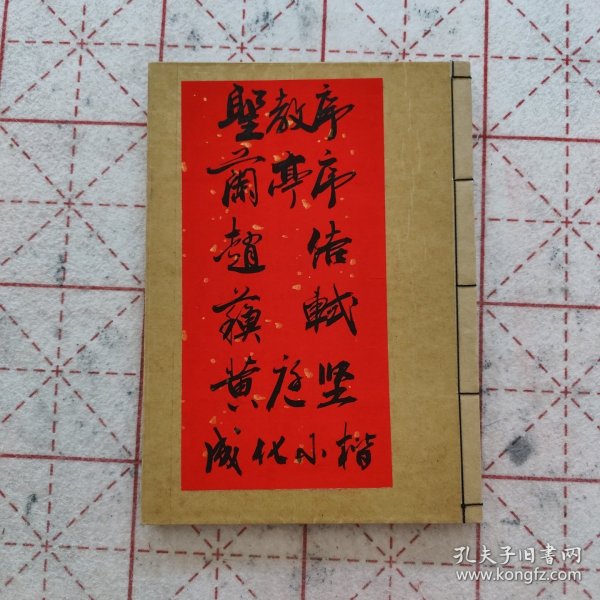 聖教序
蘭亭序
趙佶
蘇軾
黄庭坚
成化小楷
孔夫子旧书网
www.kongfz.com